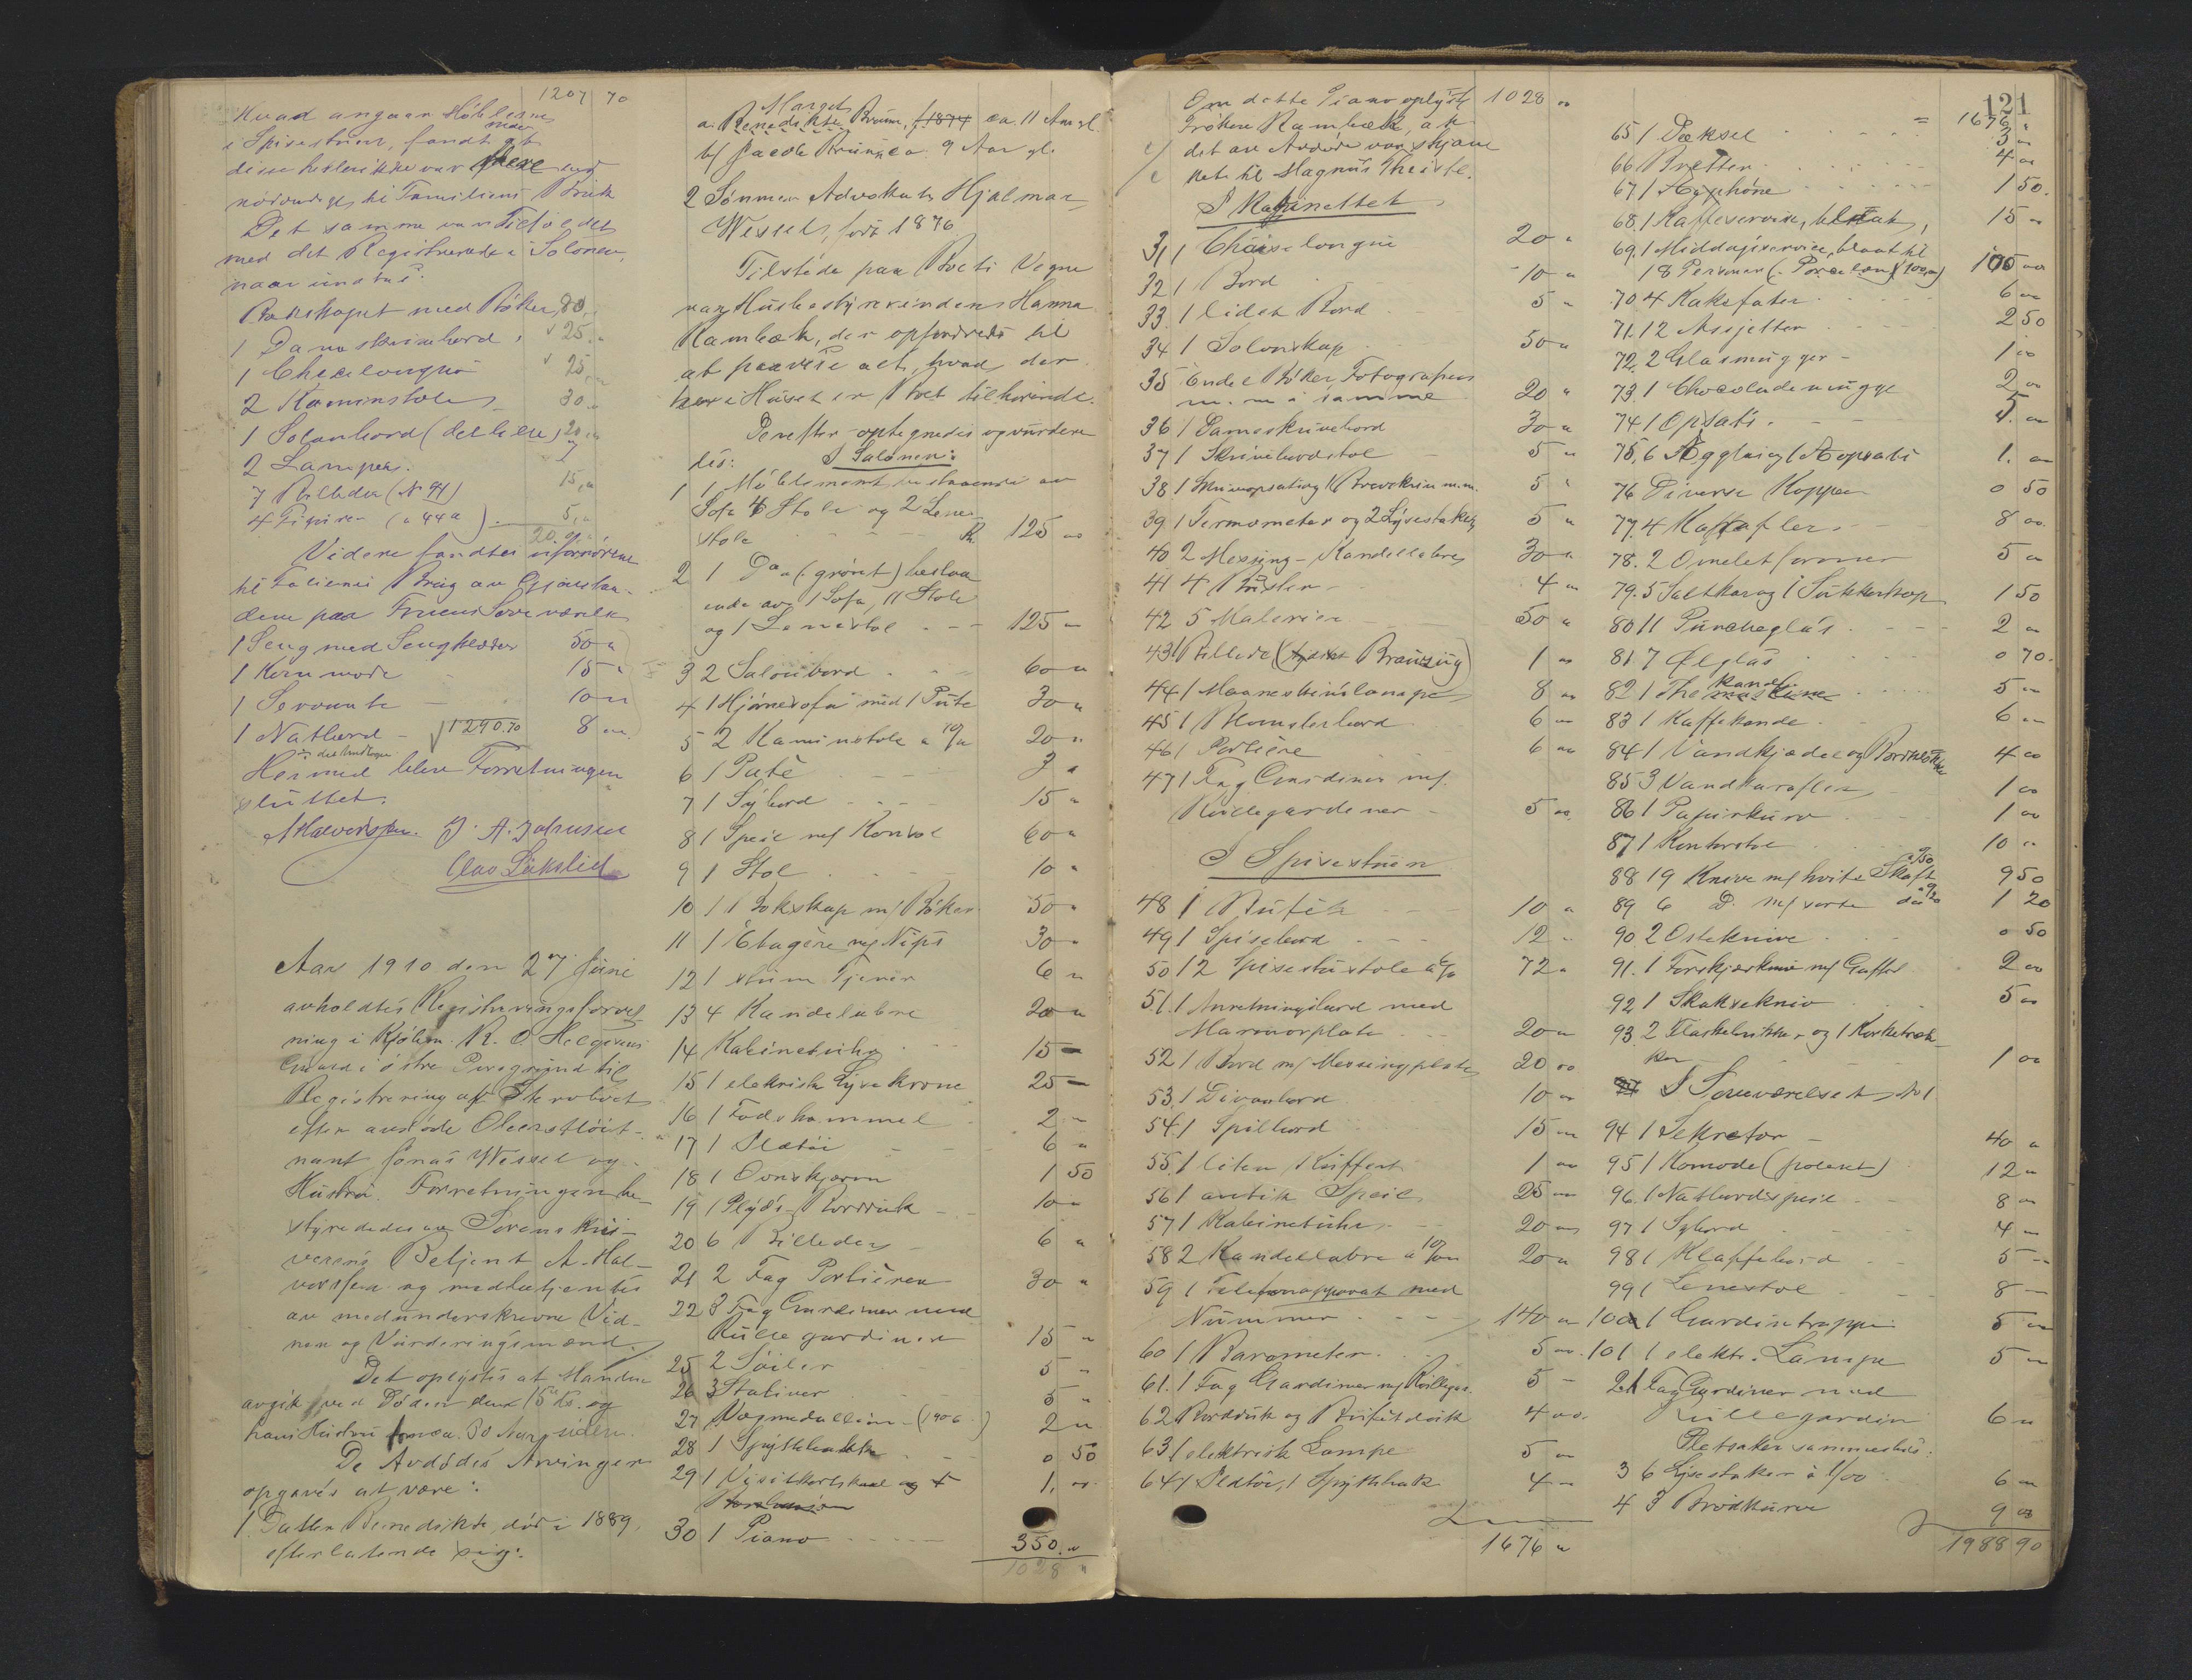 1207 70
Hvad angaar Möblerne
i Spisestuen, fandt man at
disse heller ikke var flere end
nödvendigt til Familiens Bruk
Det samme var Tilfældet
med det Registrerede i Salonen,
naar undtas:
Bokskapet med Böker 80,,
1 Dameskrivebord, 25,,
1 Chaiselongue 25,,
2 Kaminstoler 30,,
1 Salonbord (det lille) 20,,
2 Lamper. 7
7 Billeder (No 41) 15,,
4 Figurer (" 44a) 5,,
Videre fandtes ufornödne
til Familiens Brug av Gjenstan-
dene paa Fruens Soveværelse
1 Seng med Sengklæder 50 "
1 Komode 15 "
1 Servante 10 "
1 Natbord - 1290.70 8 "
Hermed blev Forretningen
sluttet.
A Halvorsen. J. A. Johnsen
Olav Lükslid
Aar 1910 den 27 Juni
avholdtes Registreringsforret
ning i Kjöbm. R. O. Helgesens
Gaard i östre Porsgrund til
Registrering af Stervboet
efter avdöde Oberstlöit-
nant Jonas Wessel og
Hustru. Forretningen be
styrededes av Sorenskri-
verens Betjent A. Hal-
vorsen og medbetjentes
av medunderskrevne Vid-
ner og Vurderingsmænd.
Det oplystes at Manden
avgik ved Döden den 15 ds. og
hans Hustru for ca. 30 Aar siden.
De Avdödes Arvinger
opgaves at være:
1. Datter Benedikte, död i 1889,
efterlatende sig:
Margot
a. Benedikte Bruun, f. 1874 ca. 11 Aar gl.
b/ Jacob Bruun, ca. 9 Aar gl.
2 Sönnen Advokat Hjalmar
Wessel, född 1876.
Tilstede paa Boets Vegne
var Husbestyrerinden Hanna
Rambæk, der opfordredes til
at paavise alt, hvad der
her i Huset er Boet tilhörende.
Derefter optegnedes og vurdere
des: I Salonen:
1 1 Möblement bestaaende av
Sofa 6 Stole og 2 Lene-
stole - - - Kr. 125 "
2 1 Do (grönt) bestaa
ende av 1 Sofa, 11 Stole
og 1 Lenestol - - 125 "
3 2 Salonbord 60 "
4 1 Hjörnesofa med 1 Pute 30 "
5 2 Kaminstole a 10/" 20 "
6 1 Puté 3 "
7 1 Sybord 15 "
8 1 Speil m/ Konsol 60 "
9 1 Stol 10 "
10 1 Bokskap m/ Böker 50 "
11 1 Etagère m/ Nips 30 "
12 1 stum Tjener 6 "
13 4 Kandelabre 20 "
14 Kabinetsuhr 15 "
15 1 elektrisk Lysekrone 25 "
16 1 Fodskammel 2 "
17 1 Pletöi 6 "
18 1 Ovnskjærm 1 50
19 1 Plyds-Bordduk 10 "
20 6 Billeder 6 "
21 2 Fag Portièren 30 "
22 3 Fag Gardiner med
Rullegardiner 15 "
25 2 Söiler 5 "
26 3 Stativer 5 "
27 Vægmedallion (1906) 2 "
28 1 Spytbakke 0 50
29 1 Visitkortskaal 1. "
30 1 Piano 350. "
1028 "
Om dette Piano oplyste 1028 "
Fröken Rambæk, at
det av Avdöde var skjæn
ket til Magnus Theiste.
I Kabinettet
31 1 Chaiselongue 20 "
32 1 Bord 10 "
33 1 lidet Bord 5 "
34 1 Salonskap 50 "
35 Endel Böker, Fotografier
m. m. i samme 20 "
36 1 Dameskrivebord 30 "
37 1 Skrivebordstol 5 "
38 1 Skriveopsats og 1 Brevskrin m.m. 5 "
39 1 Termometer og 2 Lysestaker 5 "
40 2 Messing-Kandelabre 30 "
41 4 Büster 4 "
42 5 Malerier 50 "
43 1 Billede 1 "
44 1 Maaneskinslampe 8 "
45 1 Blomsterbord 6 "
46 1 Portière 6 "
47 1 Fag Gardiner m/
Rullegardener 5 "
I Spisestuen
48 1 Bufét 10 "
49 1 Spisebord 12 "
50 12 Spisestustole à 6/" 72 "
51. 1 Anretningsbord med
Marmorplate 20 "
52 1 Bord m/ Messingplate 20 "
53. 1 Divanbord 10 "
54. 1 Spilbord 15 "
55. 1 liten Kuffert 1 "
56 1 antik Speil 25 "
57 1 Kabinetsuhr 20 "
58 2 Kandellabre a 10/" 20 "
59 1 Telefonapparat med
Nummer 140 "
60 1 Barometer 5 "
61. 1 Fag Gardiner m/ Rullegar. 5 "
62 Bordduk og Bufétduk 4 "
63 1 elektrisk Lampe 5 "
64 1 Pletöi, 1 Spytbak 4 "
1676 "
121
= 1676 "
65 1 Dæksel 3 "
66 Bretter 4 "
67 1 1 50.
68. 1 Kaffeservise, blaat, 15 "
69. 1 Middagsservise, blaat til
18 Personer (Porcelæn) 100 "
70 4 Kakefater 6 "
71. 12 Assjetter 2 50
72. 2 Glasmugger 1 "
73 1 Chocolademugge 2 "
74 1 Opsats 5. "
75. 6 Æggglas og 1 Ægopsats 1. "
76 Diverse Kopper 0 50
77. 4 Karafler 8 "
78. 2 Omeletformer 5 "
79. 5 Saltkar og 1 Sukkerkop 1 50
80 11 Puncheglas 2 "
81 7 Ölglas 0 70.
82 1 Thekande 5 "
83 1 Kaffekande 6 "
84 1 Vandkjedel og Bordklokke 4 "
85 3 Vandkarafler 1 "
86 1 Papirkurv 1 "
87 1 Kontorstol 10 "
88 19 Knive m/ hvite Skaft à 0/50 9 50
89 6 Do m/ sorte do à 0/20 1 20
90 2 Osteknive 0 50
91. 1 Forskjærkniv m/ Gaffel 2 "
92 1 Hakkekniv 5 "
93. 2 Flaskebrikker og 1 Korketræk-
ker 1 "
I Soveværelset No 1
94 1 Sekretær 40 "
95 1 Komode (poleret) 12 "
96. 1 Natbordspeil 8 "
97 1 Sybord 4 "
98 1 Klaffebord 5 "
99 1 Lenestol 8 "
100 1 Gardintrappe 5 "
101 1 elektr. Lampe 5 "
2 1 Fag Gardiner med
Rullegardin 6 "
Pletsaker sammesteds:
3 6 Lysestaker à 1/00 6 "
4 3 Brödkurve 9 "
1988 90